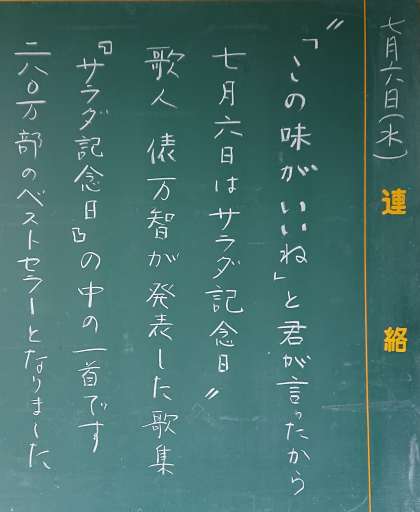 七月六日(水)
連絡
〝「この味がいいね」と君が言ったから
七月六日はサラダ記念日〟
歌人 俵万智が発表した歌集
『サラダ記念日』の中の一首です
二八〇万部のベストセラーとなりました